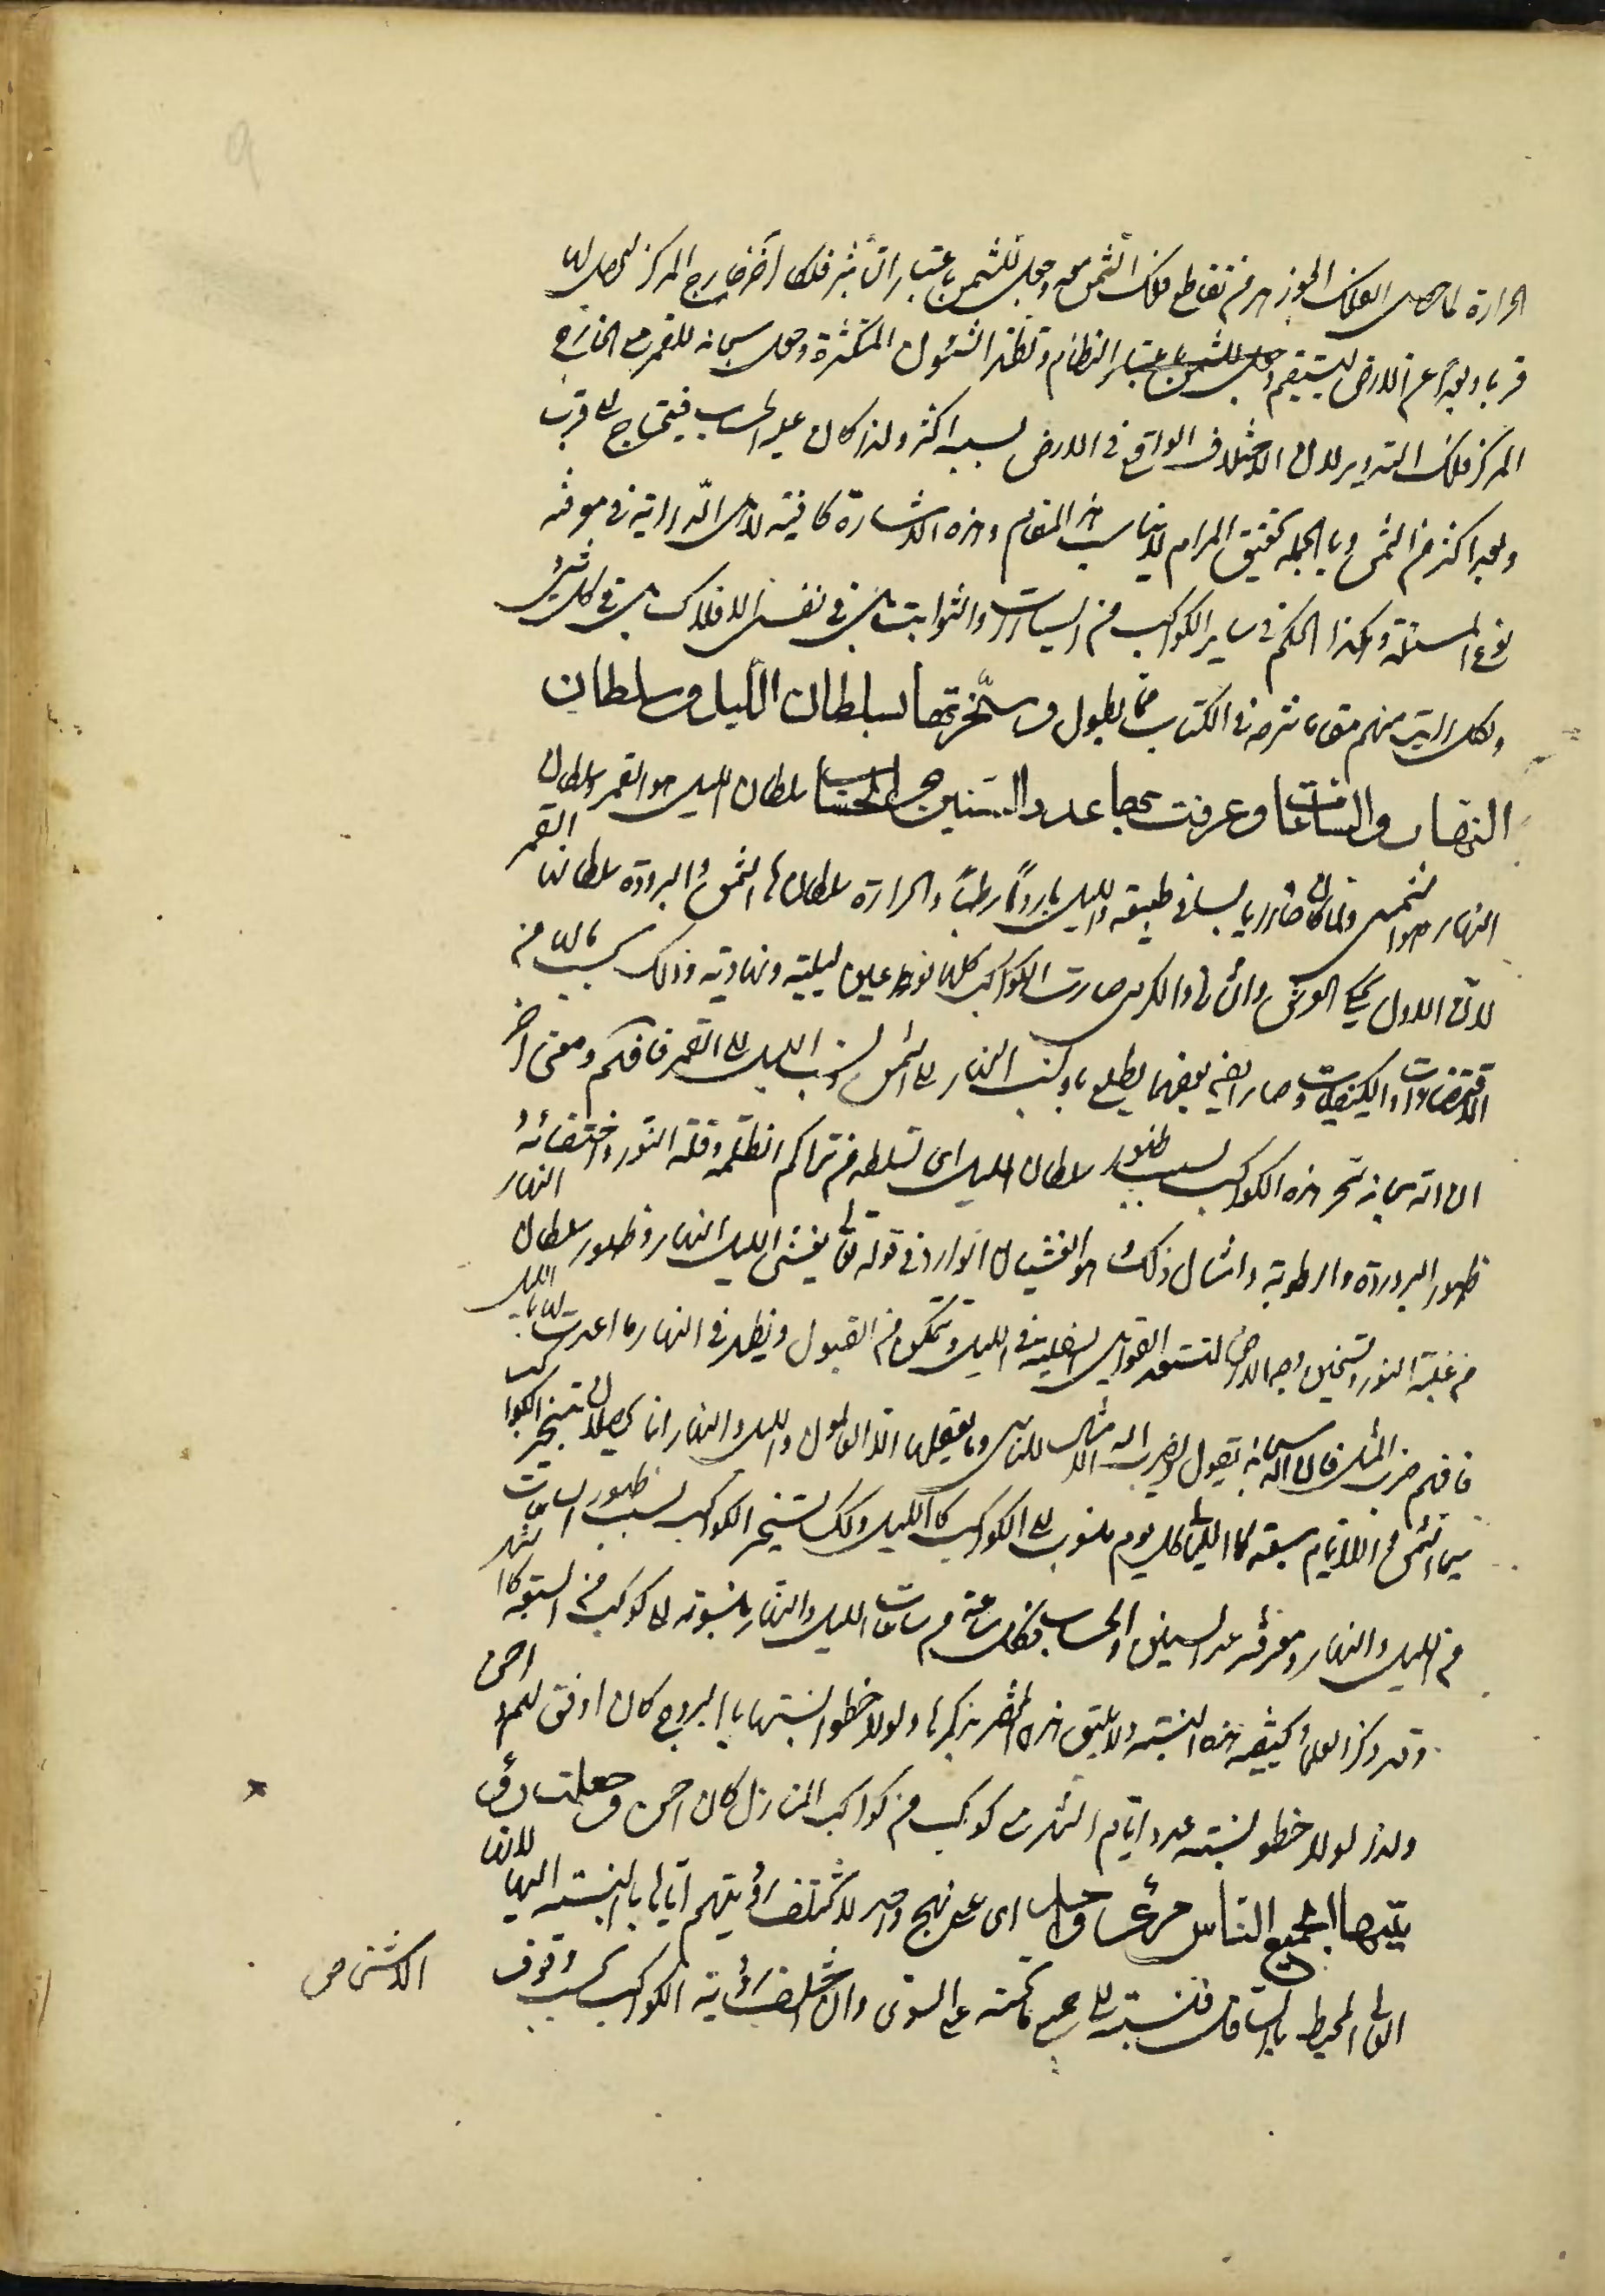 الحرارة لما حصل لفلك الجوزهر من تقاطع فلك الشمس معه وجعل للشمس باعتبار التأثير فلكا آخر خارج المركز ليحصل لها
قربا وبعدا عن الارض ليستقيم النظام وتظهر الشئون المتكثرة وجعل سبحانه للقمر مع الخارج
المركز فلك التدوير لان الاختلاف الواقع في الارض بسببه اكثر ولذا كان عليه الحساب فيحتاج الى قرب
وبعد اكثر من الشمس وبالجملة تحقيق المرام لا يناسب هذا المقام وهذه الاشارة كافية لاهل الدراية في معرفة
نوع المسئلة وهكذا الحكم في ساير الكواكب من السيارات والثوابت بل في نفس الافلاك بل في كل شيء
ولكل رأيت منهم مقاما شرحه في الكتاب مما يطول وسخّرتها بسلطان الليل وسلطان
النهار والساعات وعرفت بها عدد السنين والحساب سلطان الليل هو القمر وسلطان
النهار هو الشمس ولما كان النهار حارا يابسا في طبيعته والليل باردا رطبا والحرارة سلطانها الشمس والبرودة سلطانها القمر
لان الاول يحكي العرش والثاني الكرسي صارت الكواكب كلها نوعين ليلية ونهارية وذلك بحسب ما لها من
الاقتضاءات والكيفيات وصار ايضا بعضهما يطلع بالليل بنسب النهار الى الشمس ونسب الليل الى القمر فافهم ومعنى آخر
ان الله سبحانه سخر هذه الكواكب بسبب ظهور سلطان الليل اى تسلطه من تراكم الظلمة وقلة النور واختفائه
ظهور البرودة والرطوبة وامثال ذلك وهو الغشيان الوارد في قوله تعالى يغشى الليل النهار وظهور سلطان النهار
من غلبة النور وتسخين وجه الارض لتستعد القوابل السفلية في الليل وتتمكن من القبول ويظهر في النهار ما اعدت لها بالليل
فافهم ضرب المثل فان الله سبحانه يقول ويضرب الله الامثال للناس وما يعقلها الا العالمون والليل والنهار انما يحصلان بتسخير الكواكب
سيما الشمس والايام سبعة كما الليالى كل يوم منسوب الى الكواكب كالليل وكذلك تسخير الكواكب بسبب ظهور الساعات
من الليل والنهار ومعرفة عدد السنين والحساب فكل ساعة من ساعات الليل والنهار منسوبة الى كوكب من السبعة كالشهر
وقد ذكر العلماء كيفية هذه النسبة ولا يليق هذا المختصر بذكرها ولو لاحظوا نسبتها بالبروج كان اوفق للمراد احسن
ولذا لو لاحظوا نسبة عدد ايام الشهر مع كوكب من كواكب المنازل كان احسن وجعلت رؤ
يتها لجميع الناس مرئى واحدا اى على نهج واحد لا تختلف رؤيتهم اياها بالنسبة اليها لانها
العالى المحيط بالسافل فنسبته الى جميع ما تحته على السوى وان اختلف رؤية الكواكب بحسب وقوف
الاشخاص